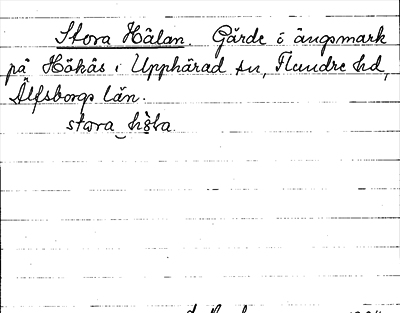 Stora Hålan. Gärde ö ängsmark
på Håkås i Upphärad sn, Flundre hd,
Älfsborgs län.
stora